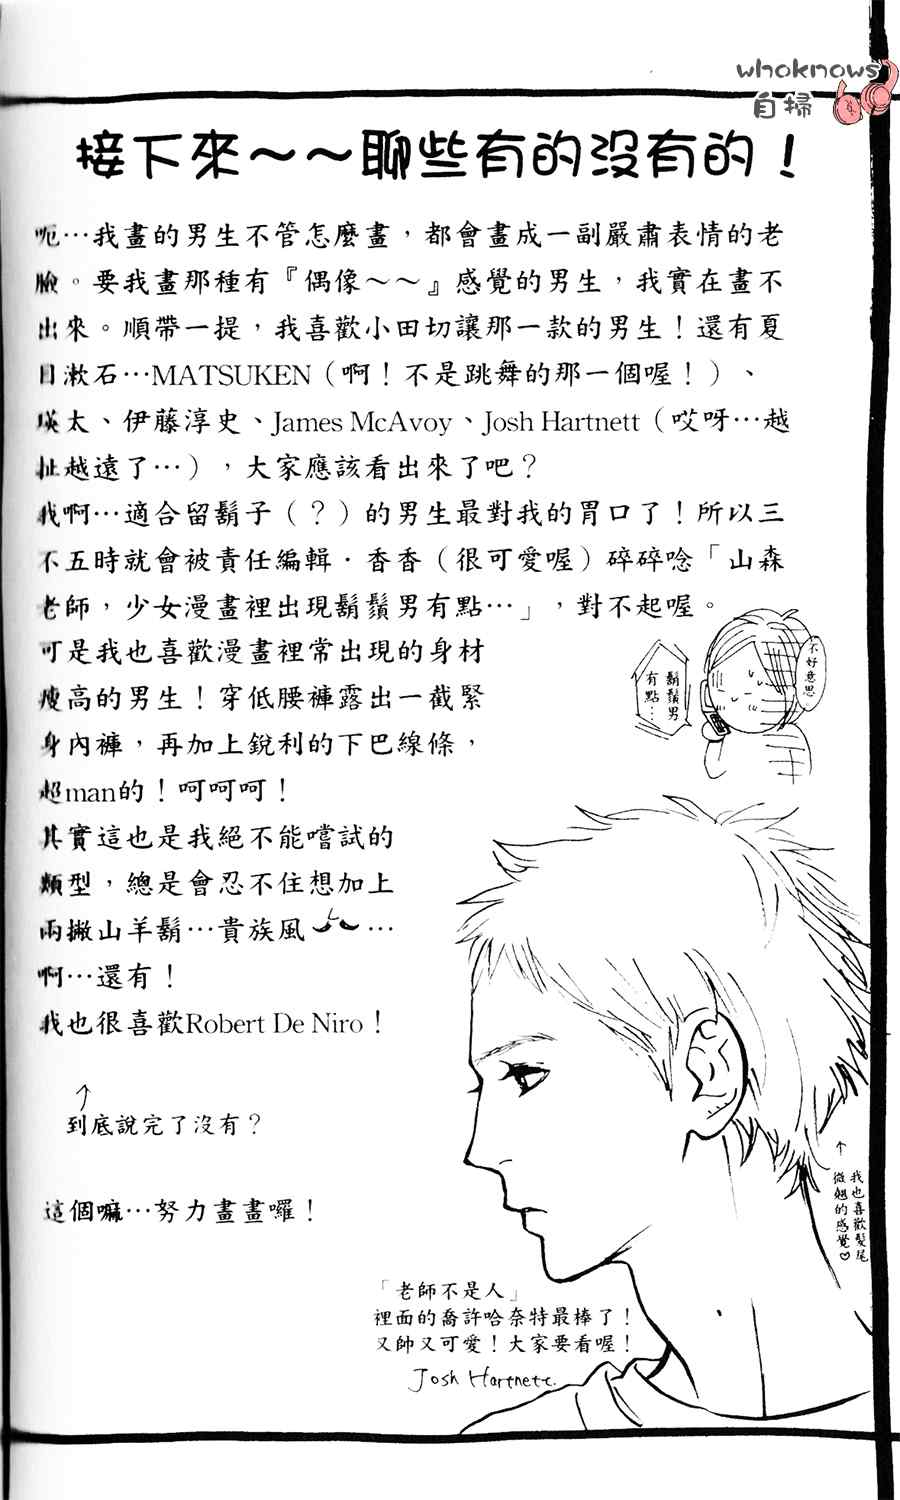 whoknows
自掃
接下來～～聊些有的沒有的！
呃…我畫的男生不管怎麼畫，都會畫成一副嚴肅表情的老
臉。要我畫那種有『偶像～～』感覺的男生，我實在畫不
出來。順帶一提，我喜歡小田切讓那一款的男生！還有夏
目漱石…MATSUKEN（啊！不是跳舞的那一個喔！）、
瑛太、伊藤淳史、James McAvoy、Josh Hartnett（哎呀…越
扯越遠了…），大家應該看出來了吧？
我啊…適合留鬍子（？）的男生最對我的胃口了！所以三
不五時就會被責任編輯．香香（很可愛喔）碎碎唸「山森
老師，少女漫畫裡出現鬍鬚男有點…」，對不起喔。
可是我也喜歡漫畫裡常出現的身材
瘦高的男生！穿低腰褲露出一截緊
身內褲，再加上銳利的下巴線條，
超man的！呵呵呵！
其實這也是我絕不能嚐試的
類型，總是會忍不住想加上
兩撇山羊鬍…貴族風…
啊…還有！
我也很喜歡Robert De Niro！
↑
到底說完了沒有？
這個嘛…努力畫畫囉！
不好意思
鬍鬚男
有點…
↑
我也喜歡髮尾
微翹的感覺♡
「老師不是人」
裡面的喬許哈奈特最棒了！
又帥又可愛！大家要看喔！
Josh Hartnett.